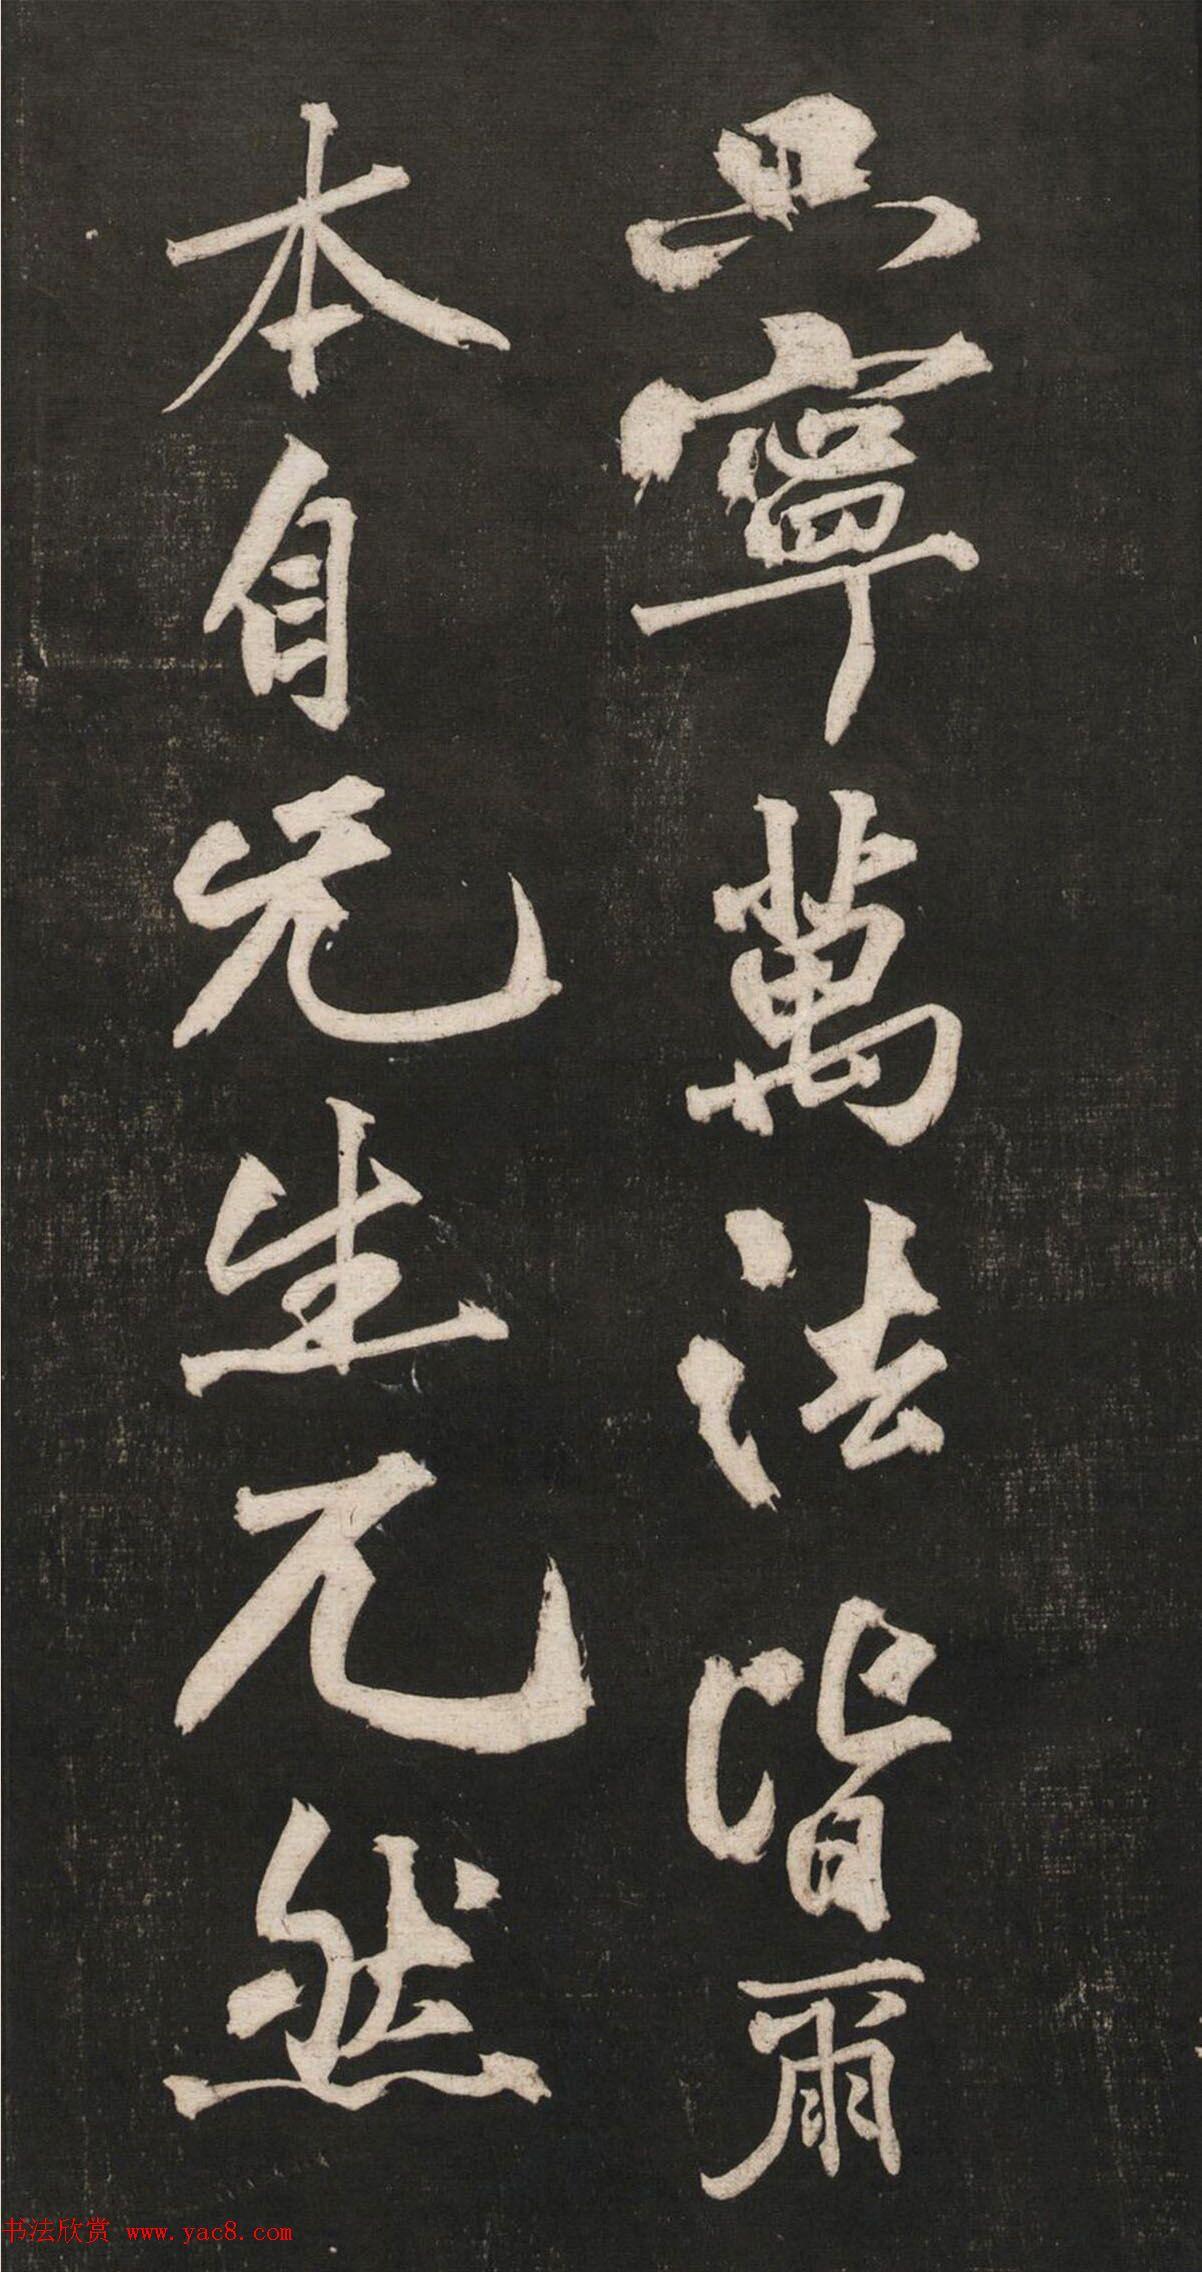 只寧萬法皆爾
本自无生兀然
书法欣赏 www.yac8.com